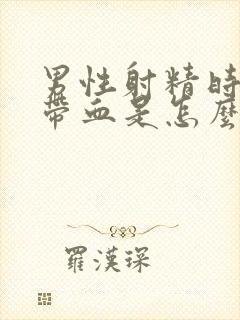 男性射精時
帶血是怎麼
羅漢琛